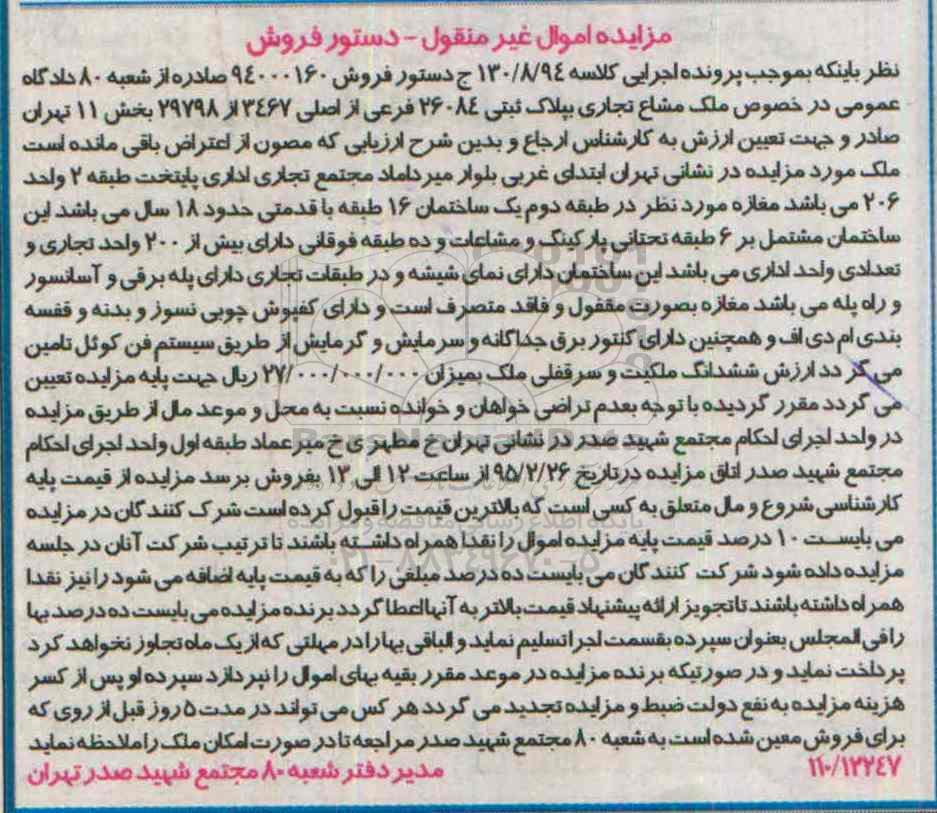 مزایده اموال غیر منقول - دستور فروش
نظر باینکه بموجب پرونده اجرایی کلاسه ۱۳۰/۸/۹۴ ج دستور فروش ۹۴۰۰۰۱۶۰ صادره از شعبه ۸۰ دادگاه
عمومی در خصوص ملک مشاع تجاری بپلاک ثبتی ۲۶۰۸۴ فرعی از اصلی ۳۴۶۷ از ۲۹۷۹۸ بخش ۱۱ تهران
صادر و جهت تعیین ارزش به کارشناس ارجاع و بدین شرح ارزیابی که مصون از اعتراض باقی مانده است
ملک مورد مزایده در نشانی تهران ابتدای غربی بلوار میرداماد مجتمع تجاری اداری پایتخت طبقه ۲ واحد
۲۰۶ می باشد مغازه مورد نظر در طبقه دوم یک ساختمان ۱۶ طبقه با قدمتی حدود ۱۸ سال می باشد این
ساختمان مشتمل بر ۶ طبقه تحتانی پارکینگ و مشاعات و ده طبقه فوقانی دارای بیش از ۲۰۰ واحد تجاری و
تعدادی واحد اداری می باشد این ساختمان دارای نمای شیشه و در طبقات تجاری دارای پله برقی و آسانسور
و راه پله می باشد مغازه بصورت مقفول و فاقد متصرف است و دارای کفپوش چوبی نسوز و بدنه و قفسه
بندی ام دی اف و همچنین دارای کنتور برق جداگانه و سرمایش و گرمایش از طریق سیستم فن کوئل تامین
می گردد ارزش ششدانگ ملکیت و سرقفلی ملک بمیزان ۲۷/۰۰۰/۰۰۰/۰۰۰ ریال جهت پایه مزایده تعیین
می گردد مقرر گردیده با توجه بعدم تراضی خواهان و خوانده نسبت به محل و موعد مال از طریق مزایده
در واحد اجرای احکام مجتمع شهید صدر در نشانی تهران خ مطهری خ میرعماد طبقه اول واحد اجرای احکام
مجتمع شهید صدر اتاق مزایده درتاریخ ۹۵/۲/۲۶ از ساعت ۱۲ الی ۱۳ بفروش برسد مزایده از قیمت پایه
کارشناسی شروع و مال متعلق به کسی است که بالاترین قیمت را قبول کرده است شرکت کنندگان در مزایده
می بایست ۱۰ درصد قیمت پایه مزایده اموال را نقدا همراه داشته باشند تا ترتیب شرکت آنان در جلسه
مزایده داده شود شرکت کنندگان می بایست ده درصد مبلغی را که به قیمت پایه اضافه می شود را نیز نقدا
همراه داشته باشند تا تجویز ارائه پیشنهاد قیمت بالاتر به آنها اعطا گردد برنده مزایده می بایست ده درصد بها
را فی المجلس بعنوان سپرده بقسمت اجرا تسلیم نماید و الباقی بها را در مهلتی که از یک ماه تجاوز نخواهد کرد
پرداخت نماید و در صورتیکه برنده مزایده در موعد مقرر بقیه بهای اموال را نپردازد سپرده او پس از کسر
هزینه مزایده به نفع دولت ضبط و مزایده تجدید می گردد هر کس می تواند در مدت ۵ روز قبل از روی که
برای فروش معین شده است به شعبه ۸۰ مجتمع شهید صدر مراجعه تا در صورت امکان ملک را ملاحظه نماید
۱۱۰/۱۲۲۴۷ مدیر دفتر شعبه ۸۰ مجتمع شهید صدر تهران